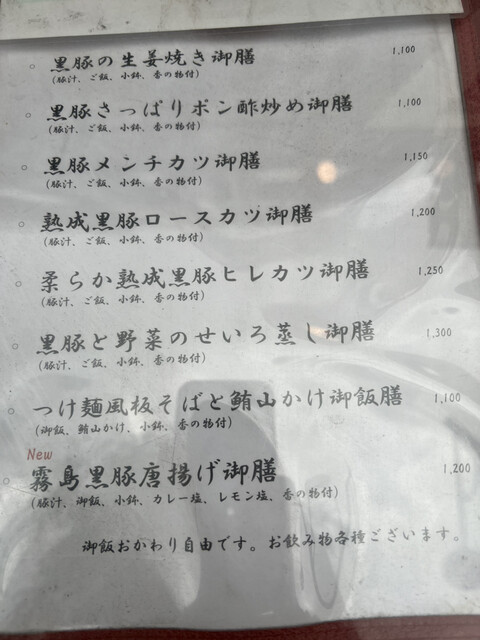 黒豚の生姜焼き御膳 1,100
(豚汁、ご飯、小鉢、香の物付)
黒豚さっぱりポン酢炒め御膳 1,100
(豚汁、ご飯、小鉢、香の物付)
黒豚メンチカツ御膳 1,150
(豚汁、ご飯、小鉢、香の物付)
熟成黒豚ロースカツ御膳 1,200
(豚汁、ご飯、小鉢、香の物付)
柔らか熟成黒豚ヒレカツ御膳 1,250
(豚汁、ご飯、小鉢、香の物付)
黒豚と野菜のせいろ蒸し御膳 1,300
(豚汁、ご飯、小鉢、香の物付)
つけ麺風板そばと鮪山かけ御飯膳 1,100
(御飯、鮪山かけ、小鉢、香の物付)
New
霧島黒豚唐揚げ御膳 1,200
(豚汁、御飯、小鉢、カレー塩、レモン塩、香の物付)
御飯おかわり自由です。お飲み物各種ございます。